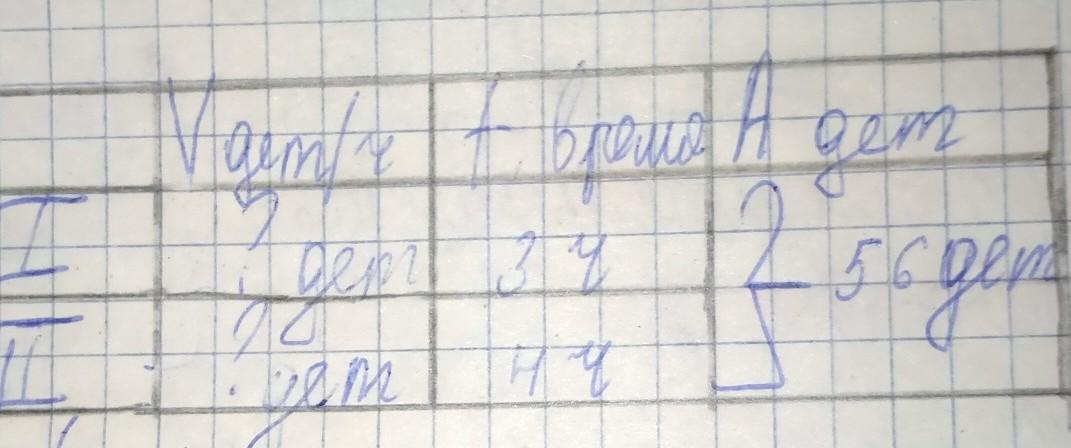 V дет/ч t время A дет
I ? дет 3 ч
56 дет
II ? дет 4 ч